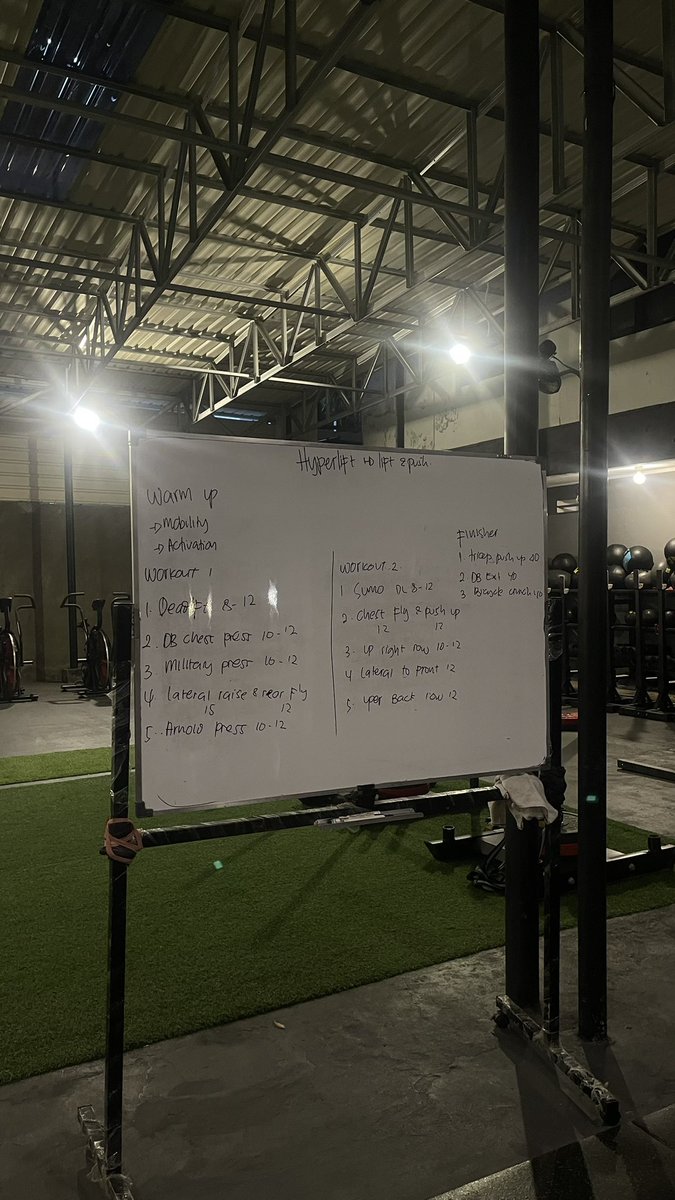 Hyperlift HD lift & push
Warm up
→ Mobility
→ Activation
Workout 1
1. Deadlift 8-12
2. DB chest press 10-12
3. Military press 10-12
4 Lateral raise & rear fly
15 12
5. Arnold press 10-12
Workout 2
1 Sumo DL 8-12
2. chest fly & push up
12 12
3. up right row 10-12
4 lateral to front 12
5. uper Back row 12
Finisher
1. tricep push up 40
2 DB Ext 40
3 crunch 40